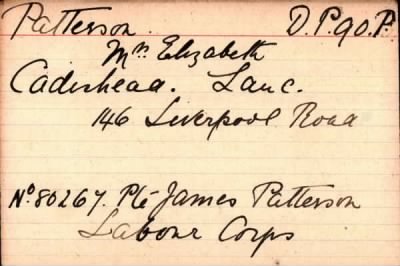 Patterson. D.P.90.P.
Mrs Elizabeth
Cadishead. Lanc.
146 Liverpool Road
No. 80267. Pte James Patterson
Labour Corps